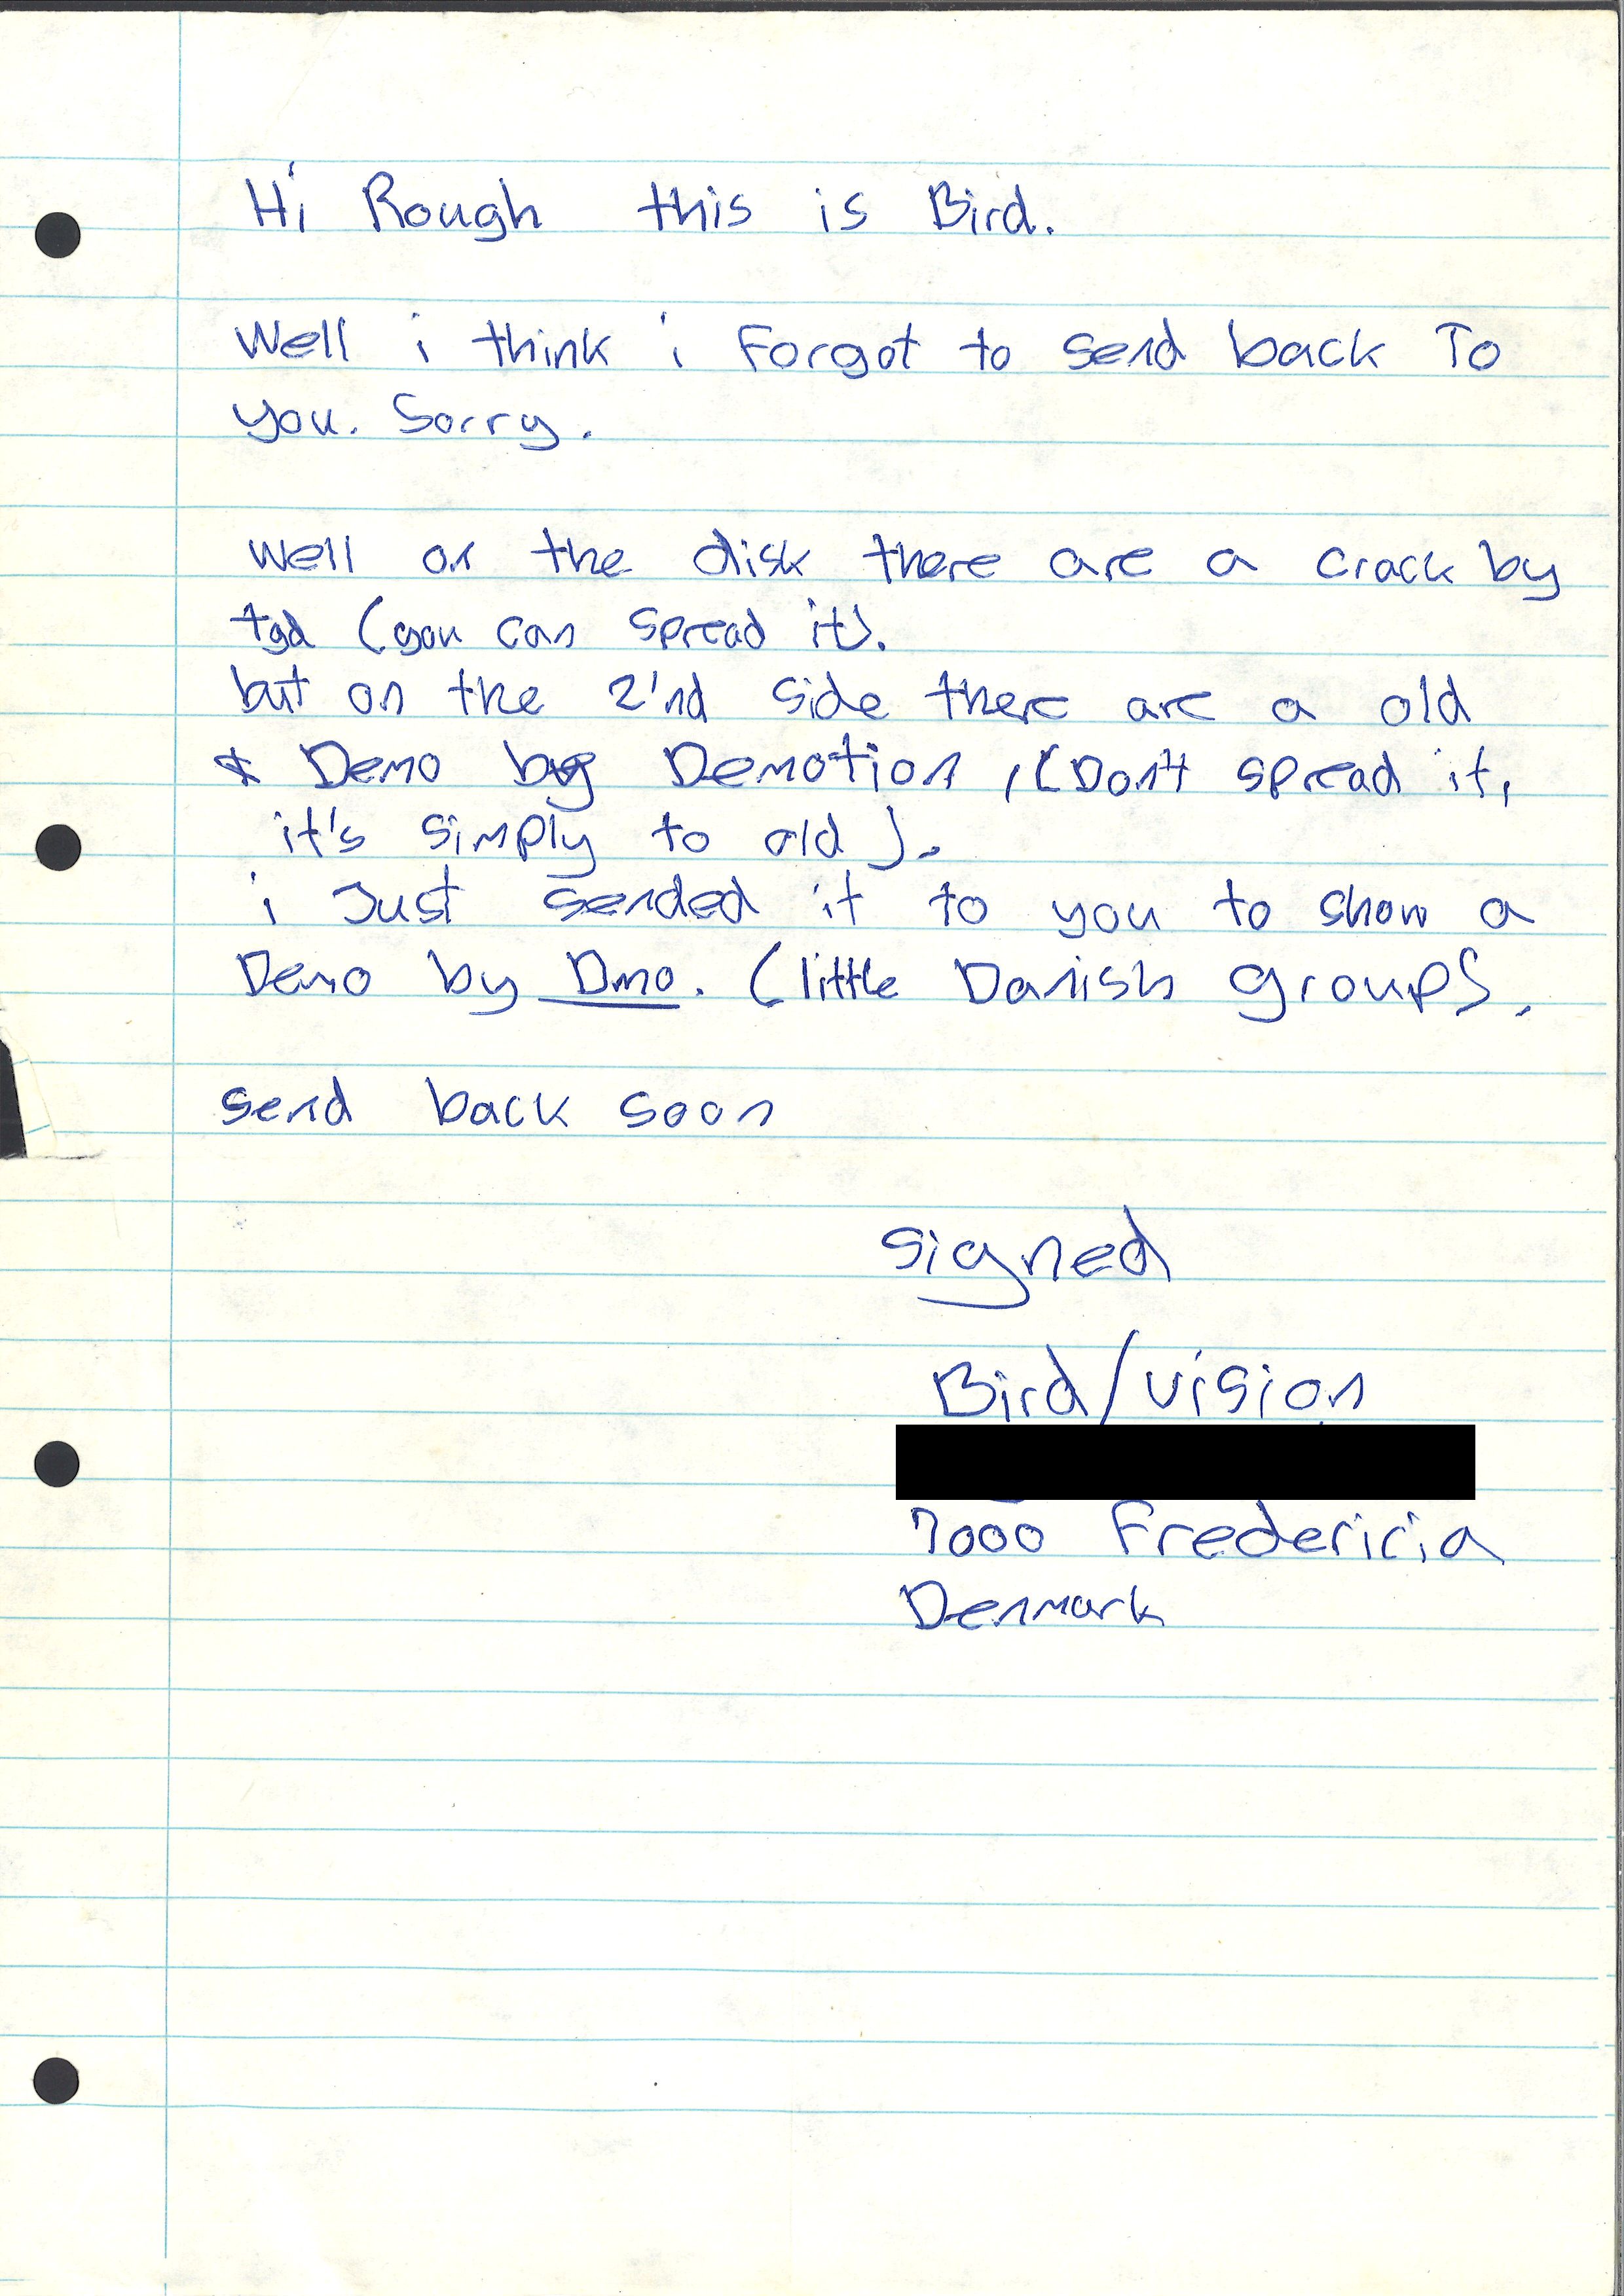 Hi Rough this is Bird.
Well i think i Forgot to send back To
you. Sorry.
Well on the disk there are a crack by
tgd (you can spread it).
but on the 2'nd side there are a old
Demo by Demotion, (Don't spread it,
it's simply to old).
i Just sended it to you to show a
Demo by Dmo. (little Danish group).
send back soon
signed
Bird/vision
7000 Fredericia
Denmark